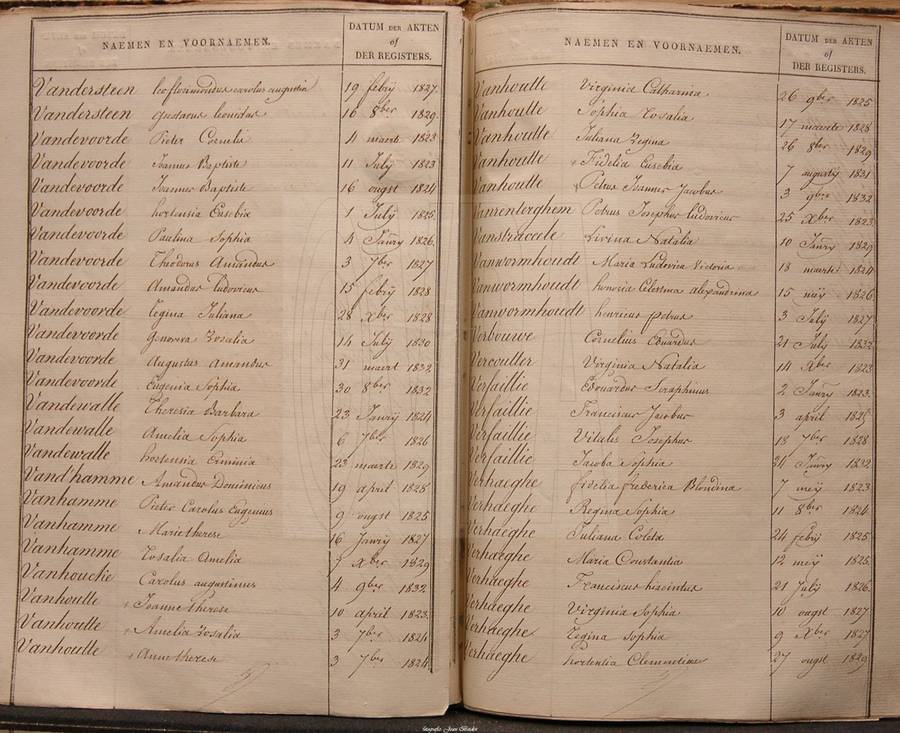 NAEMEN EN VOORNAEMEN.
DATUM DER AKTEN
of
DER REGISTERS.
Vandersteen leoflorimondus carolus augustin 19 febrij 1827
Vandersteen gustavus leonidas 16 8ber 1829
Vandevoorde Pieter Cornelis 4 maerte 1823
Vandevoorde Joannes Baptiste 11 July 1823
Vandevoorde Joannes Baptiste 16 ougst 1824
Vandevoorde hortensia Eusebia 1 July 1825
Vandevoorde Paulina Sophia 4 Janry 1826
Vandevoorde Theodorus Amandus 3 7ber 1827
Vandevoorde Amandus Ludovicus 15 febrij 1828
Vandevoorde Regina Juliana 28 Xber 1828
Vandevoorde Genoveva Rosalia 14 July 1830
Vandevoorde Augustus Amandus 31 maert 1832
Vandevoorde Eugenia Sophia 30 8ber 1832
Vandewalle Theresia Barbara 23 Janry 1824
Vandewalle Amelia Sophia 6 7ber 1826
Vandewalle hortensia Erminia 23 maerte 1829
Vand'hamme Amandus Dominicus 19 april 1828
Vanhamme Pieter Carolus Eugenius 9 ougst 1825
Vanhamme Marie therese 16 Janry 1827
Vanhamme Rosalia Amelia Xber 1829
Vanhouckie Carolus augustinus 4 9ber 1832
Vanhoutte Joanne therese 10 april 1823
Vanhoutte Amelia Rosalia 3 7ber 1824
Vanhoutte Anne therese 3 7ber 1824
NAEMEN EN VOORNAEMEN.
DATUM DER AKTEN
of
DER REGISTERS.
Vanhoutte Virginie Catharina 26 9ber 1825
Vanhoutte Sophia Rosalia 17 maerte 1828
Vanhoutte Juliana Regina 26 8ber 1829
Vanhoutte Fidelia Eusebia 7 augusty 1831
Vanhoutte Petrus Joannes Jacobus 3 9ber 1832
Vanrenterghem Petrus Josephus Ludovicus 25 Xber 1823
Vanstraceele Livina Natalia 10 Janry 1829
Vanwormhoudt Maria Ludovica Victoria 18 maerte 1824
Vanwormhoudt honoria Celestina alexandrina 15 meij 1826
Vanwormhoudt henricus petrus 3 July 1827
Verbouwe Cornelius Eduardus 21 July 1832
Vercoutter Virginia Natalia 14 Xber 1823
Verfaillie Edouardus Seraphinus 2 Janry 1823
Verfaillie Franciscus Jacobus 3 april 1825
Verfaillie Vitalis Josephus 18 7ber 1828
Verfaillie Jacoba Sophia Janry 1832
Verhaeghe fidelia frederica Blondina 7 meij 1823
Verhaeghe Regina Sophia 11 8ber 1824
Verhaeghe Juliana Coleta 24 febrij 1825
Verhaeghe Maria Constantia 12 meij 1825
Verhaeghe Franciscus hiacintus 21 July 1826
Verhaeghe Virginia Sophia 10 ougst 1827
Verhaeghe Regina Sophia 9 Xber 1827
Verhaeghe hortentia Clementina 27 ougst 1829